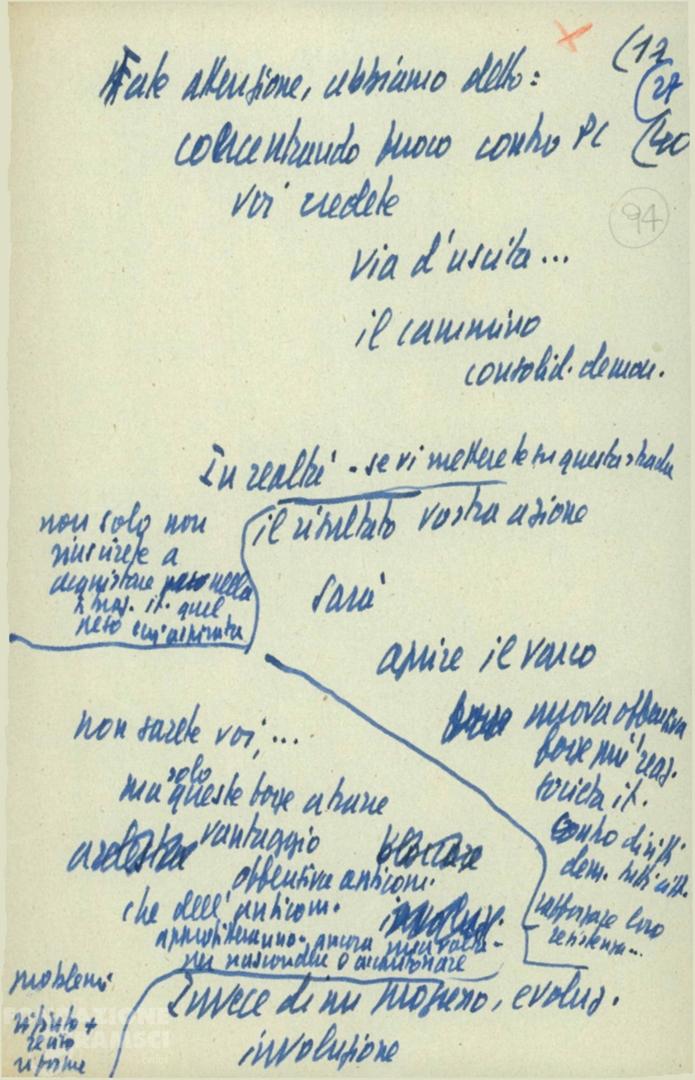 (17
(27
(40
94
Fate attenzione, abbiamo detto:
concentrando fuoco contro PC
voi credete
via d'uscita...
il cammino
consolid. democr.
In realtà - se vi metterete su questa strada
il risultato vostra azione
sarà
aprire il varco
nuova offensiva
forze più reaz.
società it.
contro diritti
dem. tutti citt.
rafforzare loro
resistenza...
non solo non
riuscirete a
acquistare nella
mag. it. quel
peso cui aspirate
non sarete voi,...
ma solo queste forze a trarre
vantaggio
offensiva anticom.
che dell'anticom.
approfitteranno ancora una volta
per nascondere o accantonare
problemi
rifiuto +
serio
riforme
Invece di un progresso, evoluz.
involuzione
FONDAZIONE
GRAMSCI